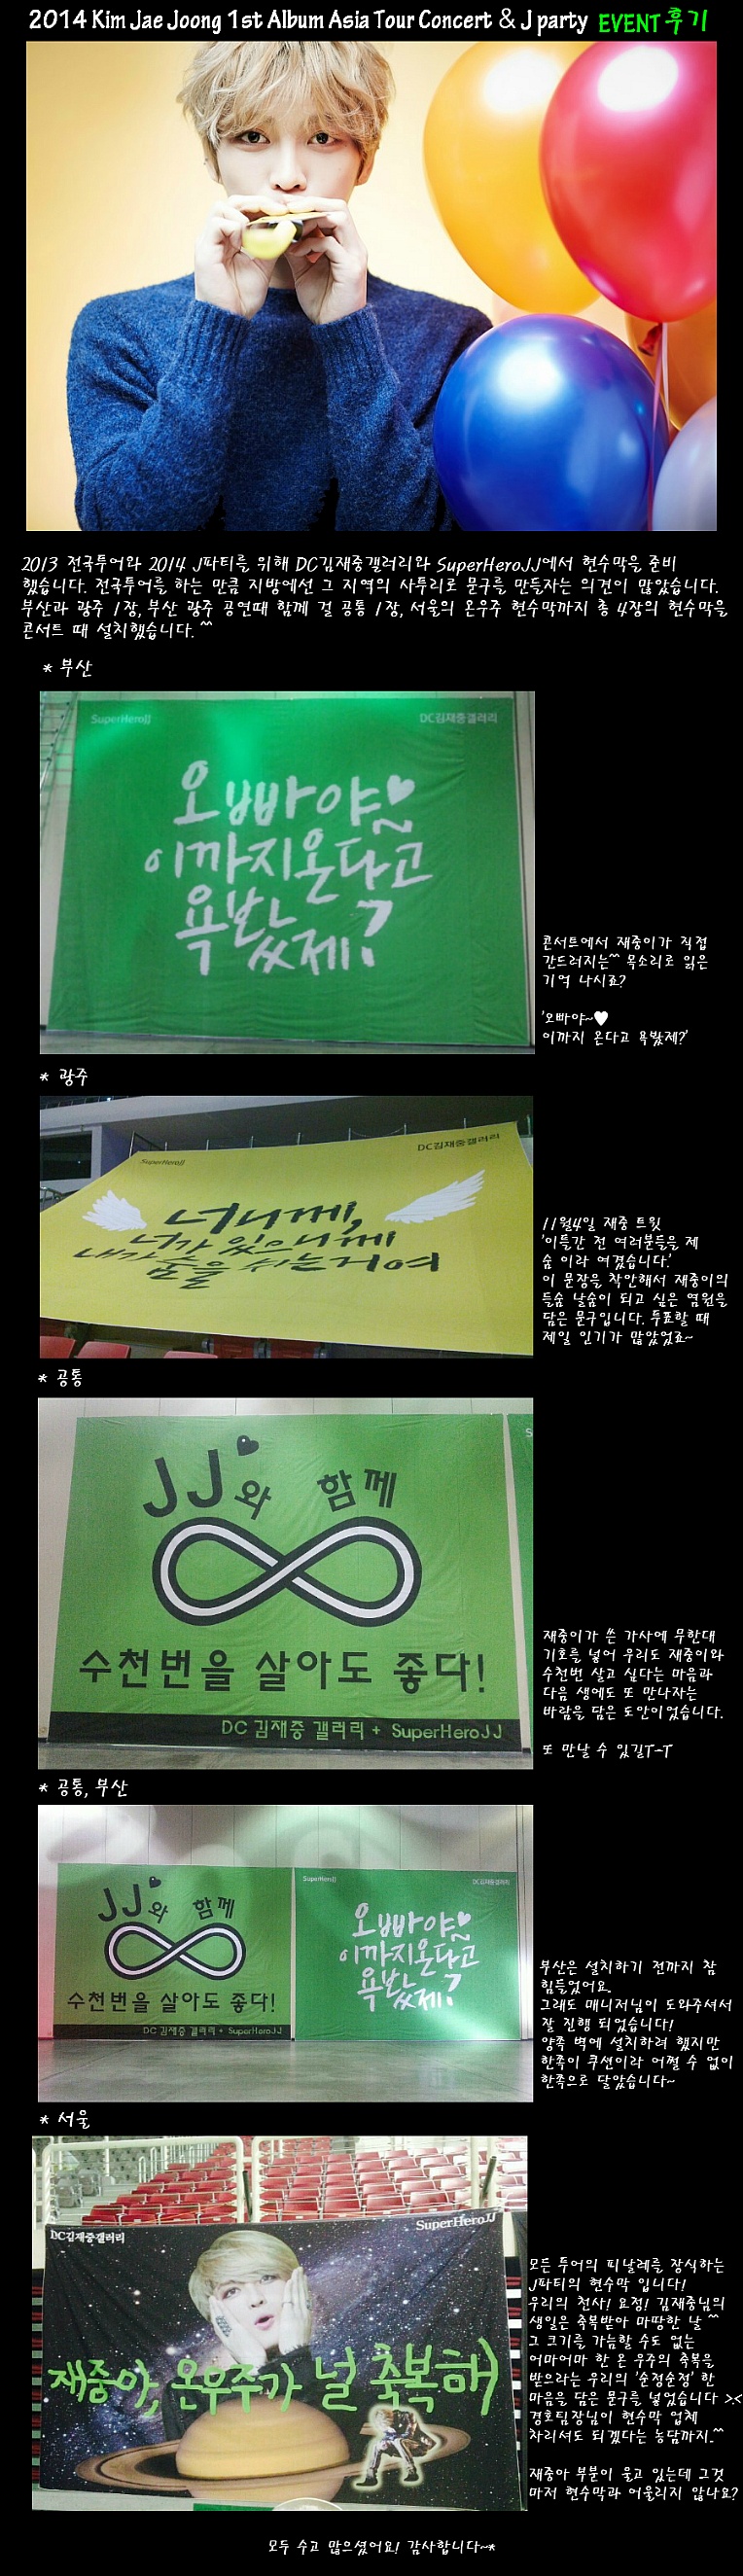 2014 Kim Jae Joong 1st Album Asia Tour Concert & J party EVENT 후기
2013 전국투어와 2014 J파티를 위해 DC김재중갤러리와 SuperHeroJJ에서 현수막을 준비
했습니다. 전국투어를 하는 만큼 지방에선 그 지역의 사투리로 문구를 만들자는 의견이 많았습니다.
부산과 광주 1장, 부산 광주 공연때 함께 걸 공통 1장, 서울의 온우주 현수막까지 총 4장의 현수막을
콘서트 때 설치했습니다.^^
* 부산
SuperHeroJJ
DC김재중갤러리
오빠야~♥
이까지온다고
욕봤제?
콘서트에서 재중이가 직접
간드러지는^^ 목소리로 읽은
기억 나시죠?
'오빠야~♥
이까지 온다고 욕봤제?'
* 광주
SuperHeroJJ
DC김재중갤러리
너니께,
너가 있으니께
내가 숨을 쉬는거여
11월4일 재중 트윗
'이틀간 전 여러분들을 제
숨 이라 여겼습니다.'
이 문장을 착안해서 재중이의
들숨 날숨이 되고 싶은 염원을
담은 문구입니다. 투표할 때
제일 인기가 많았었죠~
* 공통
S
JJ와 함께
수천번을 살아도 좋다!
DC 김재중 갤러리 + SuperHeroJJ
재중이가 쓴 가사에 무한대
기호를 넣어 우리도 재중이와
수천번 살고 싶다는 마음과
다음 생에도 또 만나자는
바람을 담은 도안이었습니다.
또 만날 수 있길T-T
* 공통, 부산
JJ와 함께
수천번을 살아도 좋다!
DC 김재중 갤러리 + SuperHeroJJ
SuperHeroJJ
DC김재중갤러리
오빠야~♥
이까지온다고
욕봤제?
부산은 설치하기 전까지 참
힘들었어요..
그래도 매니저님이 도와주셔서
잘 진행 되었습니다!
양쪽 벽에 설치하려 했지만
한쪽이 쿠션이라 어쩔 수 없이
한쪽으로 달았습니다~
* 서울
DC김재중갤러리
SuperHeroJJ
재중아, 온우주가 널 축복해)
모든 투어의 피날레를 장식하는
J파티의 현수막 입니다!
우리의 천사! 요정! 김재중님의
생일은 축복받아 마땅한 날 ^^
그 크기를 가늠할 수도 없는
어마어마 한 온 우주의 축복을
받으라는 우리의 '순정순정' 한
마음을 담은 문구를 넣었습니다 ><
경호팀장님이 현수막 업체
차리셔도 되겠다는 농담까지..^^
재중아 부분이 울고 있는데 그것
마저 현수막과 어울리지 않나요?
모두 수고 많으셨어요! 감사합니다~*